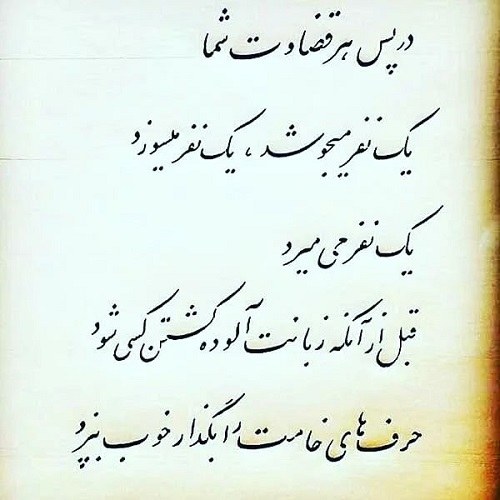 در پس هر قضاوت شما
یک نفر میجوشد، یک نفر میسوزد
یک نفر می میرد
قبل از آنکه زبانت آلوده کشتن کسی شود
حرف های خامت را بگذار خوب بپزد